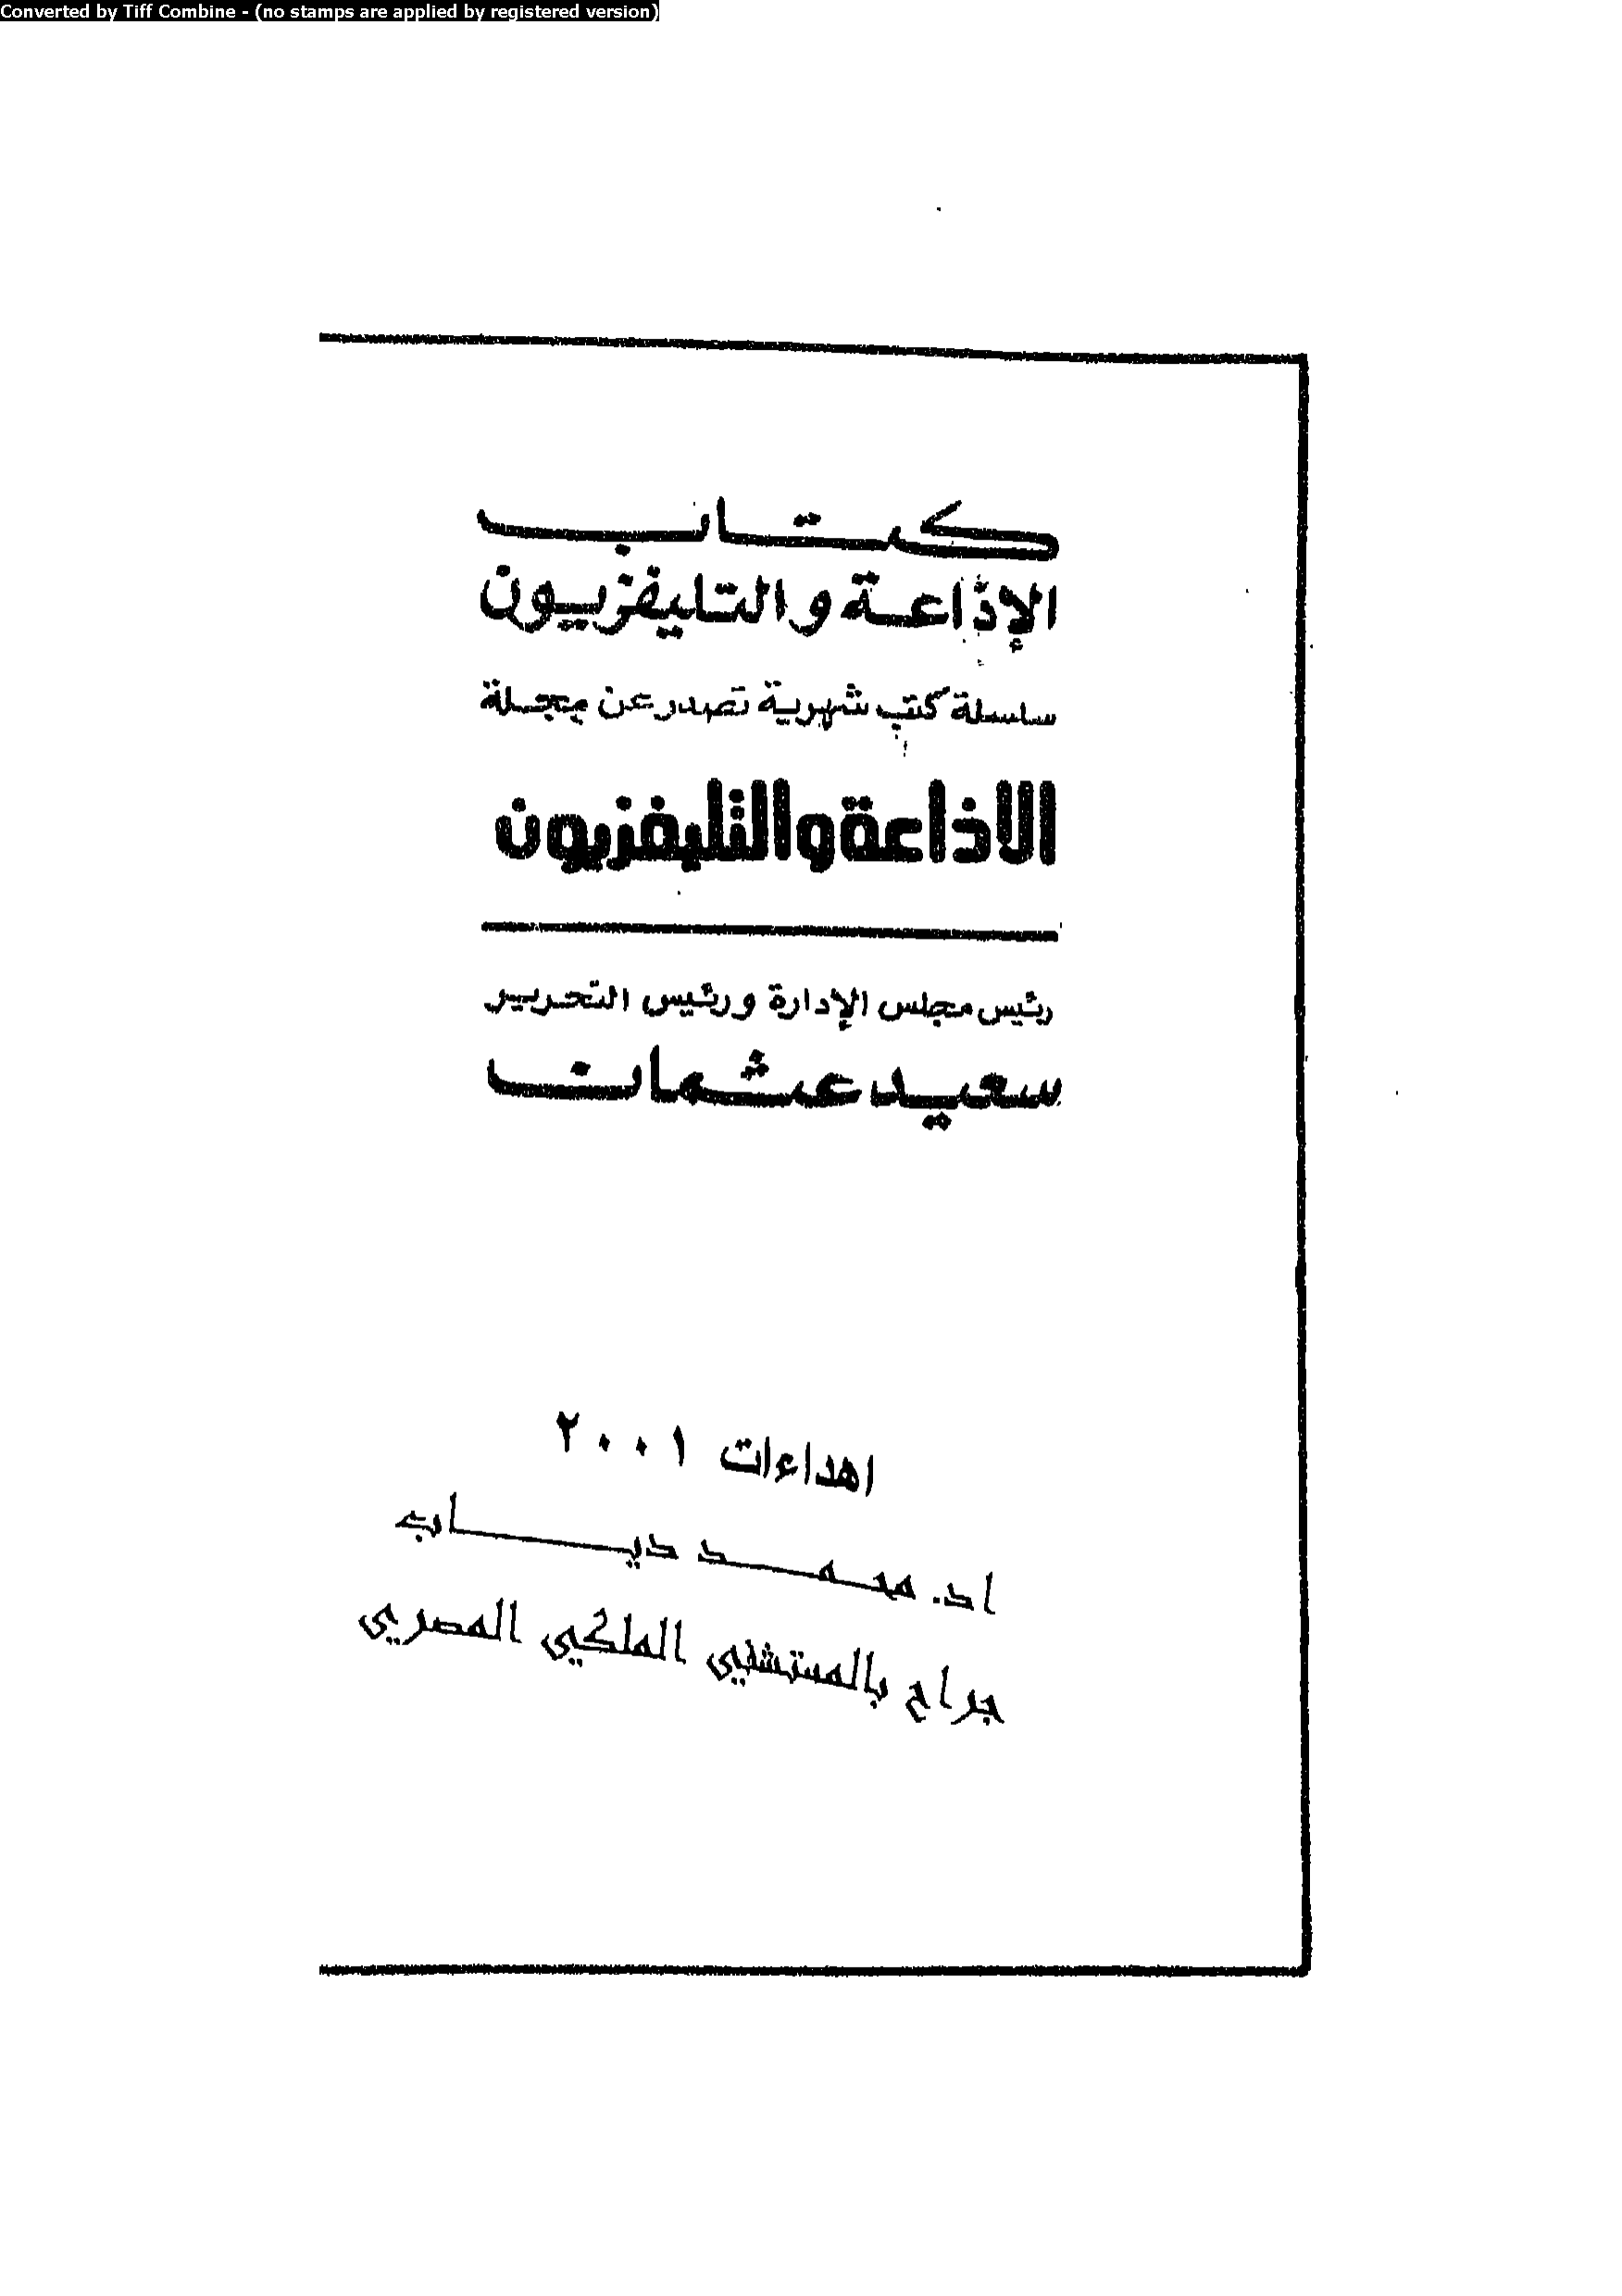 Converted by Tiff Combine - (no stamps are applied by registered version)
كتاب
الإذاعة والتليفزيون
سلسلة كتب شهرية تصدر عن مجلة
الاذاعة والتليفزيون
رئيس مجلس الإدارة ورئيس التحرير
سعيد عثمان
اهداءات ٢٠٠١
اد. محمد دياب
جراح بالمستشفي الملكي المصري